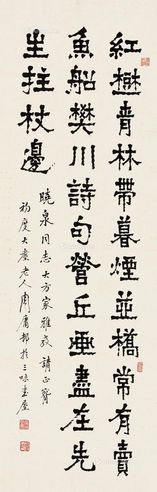 紅樹青林帶暮煙並橋常有賣
魚船樊川詩句營丘画盡在先
生拄杖邊
曉泉同志大方家雅教請正賓
初度大慶老人周庸邨於三味書屋